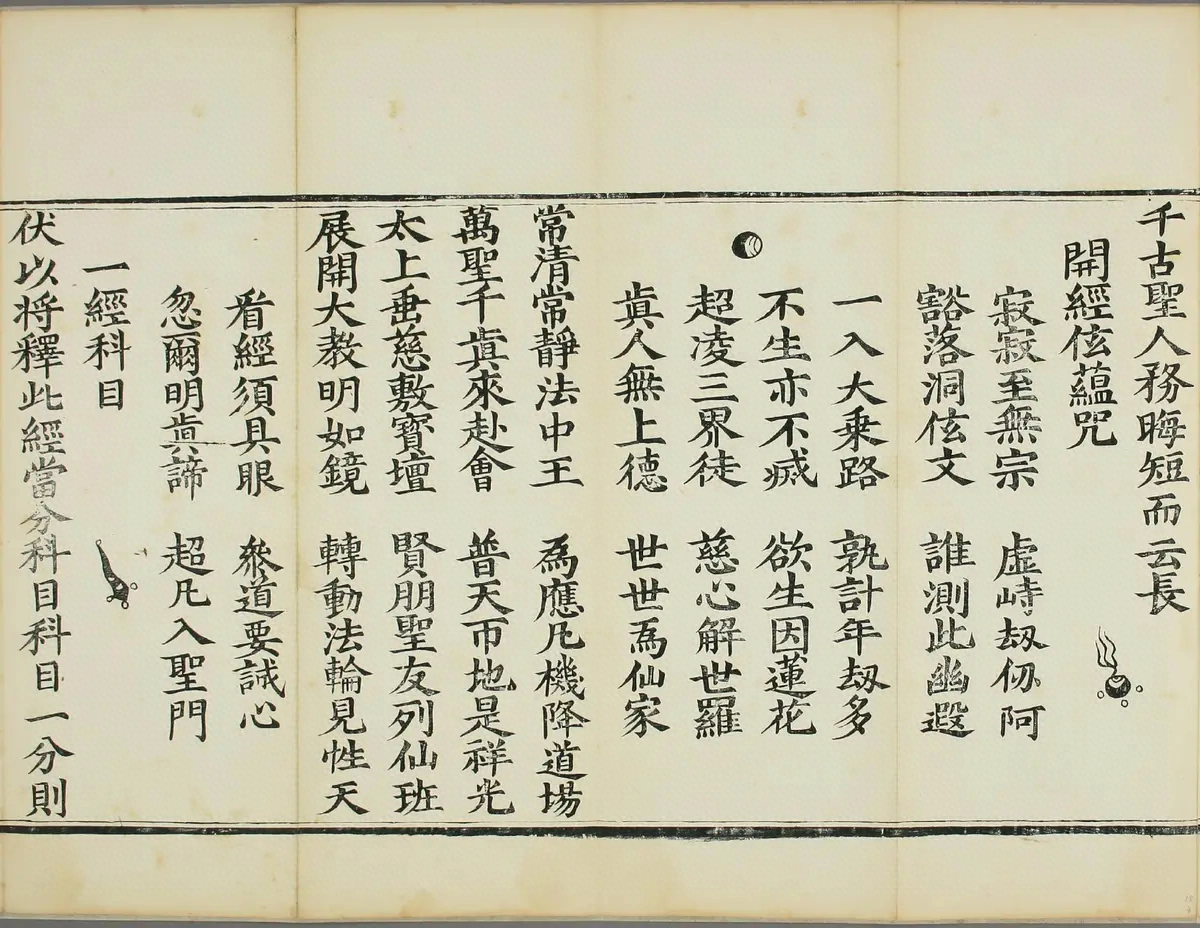 千古聖人務晦短而云長
開經伭蘊咒
寂寂至無宗 虛峙刼仞阿
豁落洞伭文 誰測此幽遐
一入大乗路 孰計年刼多
不生亦不㓕 欲生因蓮花
超凌三界徒 慈心解世羅
眞人無上德 世世爲仙家
常清常靜法中王 為應凡機降道場
萬聖千眞來赴會 普天帀地是祥光
太上垂慈敷寳壇 賢朋聖友列仙班
展開大教明如鏡 轉動法輪見性天
看經須具眼 叅道要誠心
忽爾明眞諦 超凡入聖門
一經科目
伏以将釋此經當分科目科目一分則